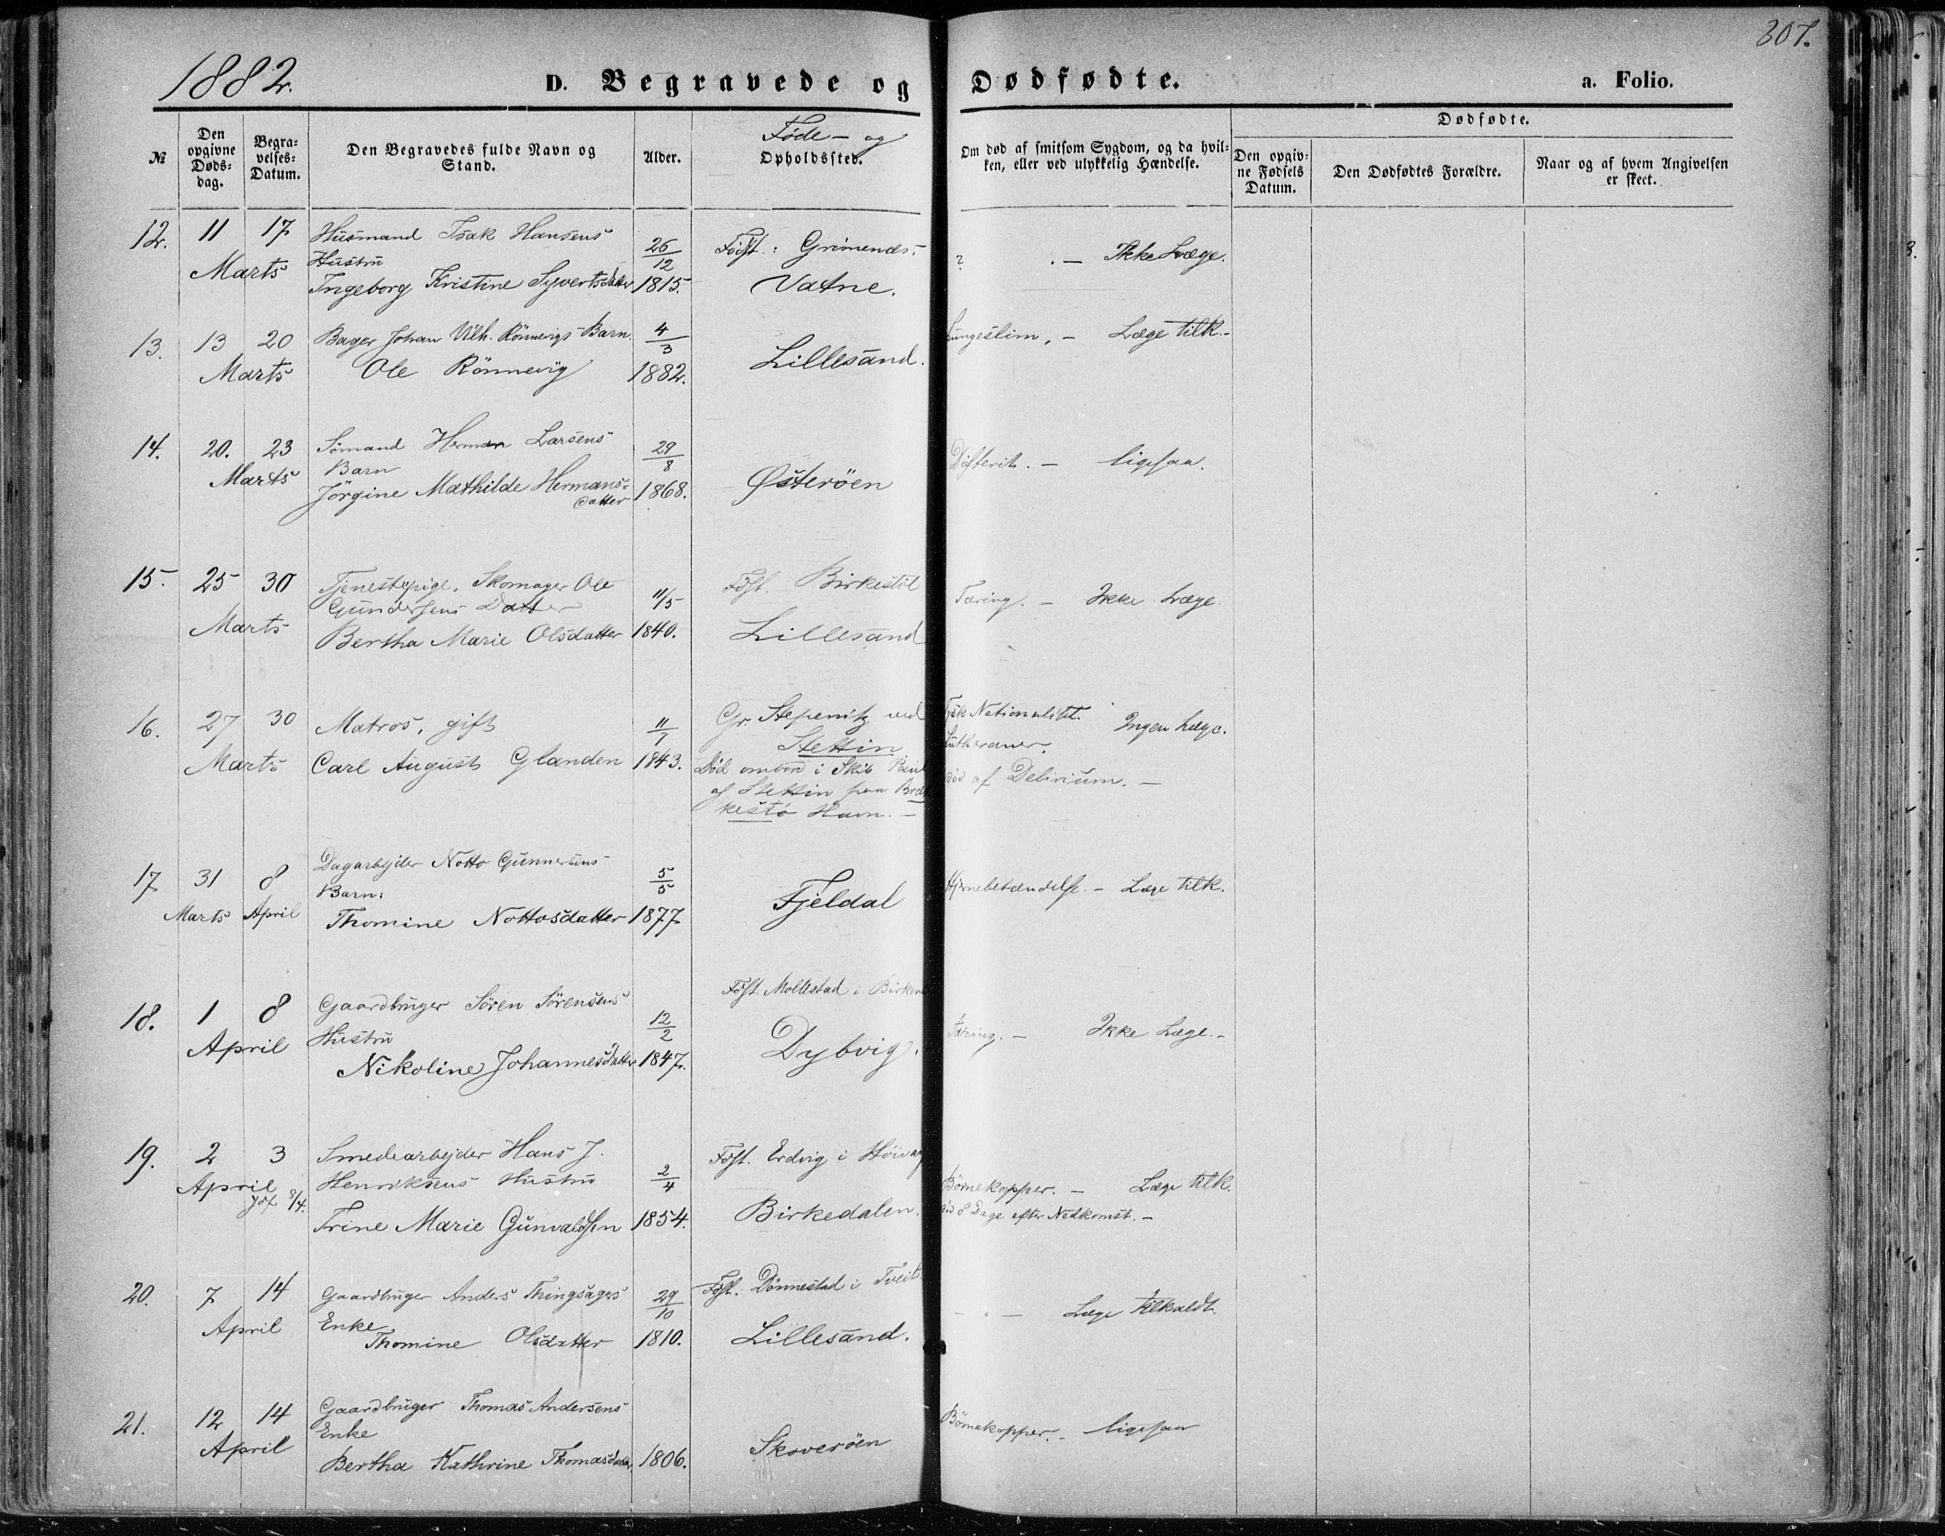 1882.
307.
D. Begravede og Dødfødte.
a. Folio.
№
Den opgivne Døds-dag.
Begra-velses-Datum.
Den Begravedes fulde Navn og Stand.
Alder.
Føde- og Opholdssted.
Om død af smitsom Sygdom, og da hvil-ken, eller ved ulykkelig Hændelse.
Dødfødte.
Den opgiv-ne Fødsels Datum.
Den Dødfødtes Forældre.
Naar og af hvem Angivelsen er skeet.
12. 11 17 Husmand Isak Hansens 26/12 Födst.: Grimends- ? . — Ikke Læge.
Marts Hustru
Ingeborg Kristine Syvertsdatter 1815. Vatne.
13. 13 20 Bager Johan Vilh. Rönnevigs Barn 4/3 Lillesand. Lungeslim. — Læge tilk.—
Marts Ole Rönnevig 1882.
14. 20. 23 Sömand Herman Larsens 29/8 Difterit. — ligesaa.
Marts Barn
Jörgine Mathilde Hermans= 1868. Østeröen
datter
15. 25 30 Tjenestepige. Skomager Ole 11/5 Födst. Birkestöl Tæring. — Ikke Læge.
Gundersens Datter
Marts Bertha Marie Olsdatter 1840. Lillesand
16. 27 30 Matros, gift 11/7 Gr. Stepenitz ved Tysk Nationalitet. Ingen Læge.
Stettin Lutheraner.
Marts Carl August Glanden 1843. Död ombord i Skib
död af Delirium. —
af Stettin paa Bræ
kestö Havn. —
17 31 8 Dagarbejder Notto Gunnersens 5/5 Fjeldal Hjernebetændelse. — Læge tilk.
Barn:
Marts April Thomine Nottosdatter 1877
18. 1 8 Gaardbruger Sören Sörensens 12/2 Födst. Mollestad i Birken Tæring. — Ikke Læge. —
April Hustru
Nikoline Johannesdatter 1847. Dybvig.
19. 2 3 Smedearbejder Hans J. 2/4 Födst. Erdvig i Höivåg
April Jdf 8/4. Henriksens Hustru Börnekopper. — Læge tilk.
Trine Marie Gunvaldsen 1854. Birkedalen. död 8 Dage efter Nedkomst. —
20. 7 14 Gaardbruger Anders Thingsages 29/10 Födst. Dönnestad i Tveit — — Læge tilkaldt.
April Enke
Thomine Olsdatter 1810. Lillesand.
21. 12 14 Gaardbruger Thomas Andersens Börnekopper. — ligesaa
April Enke
Bertha Kathrine Thomasdatter 1806. Skoveröen